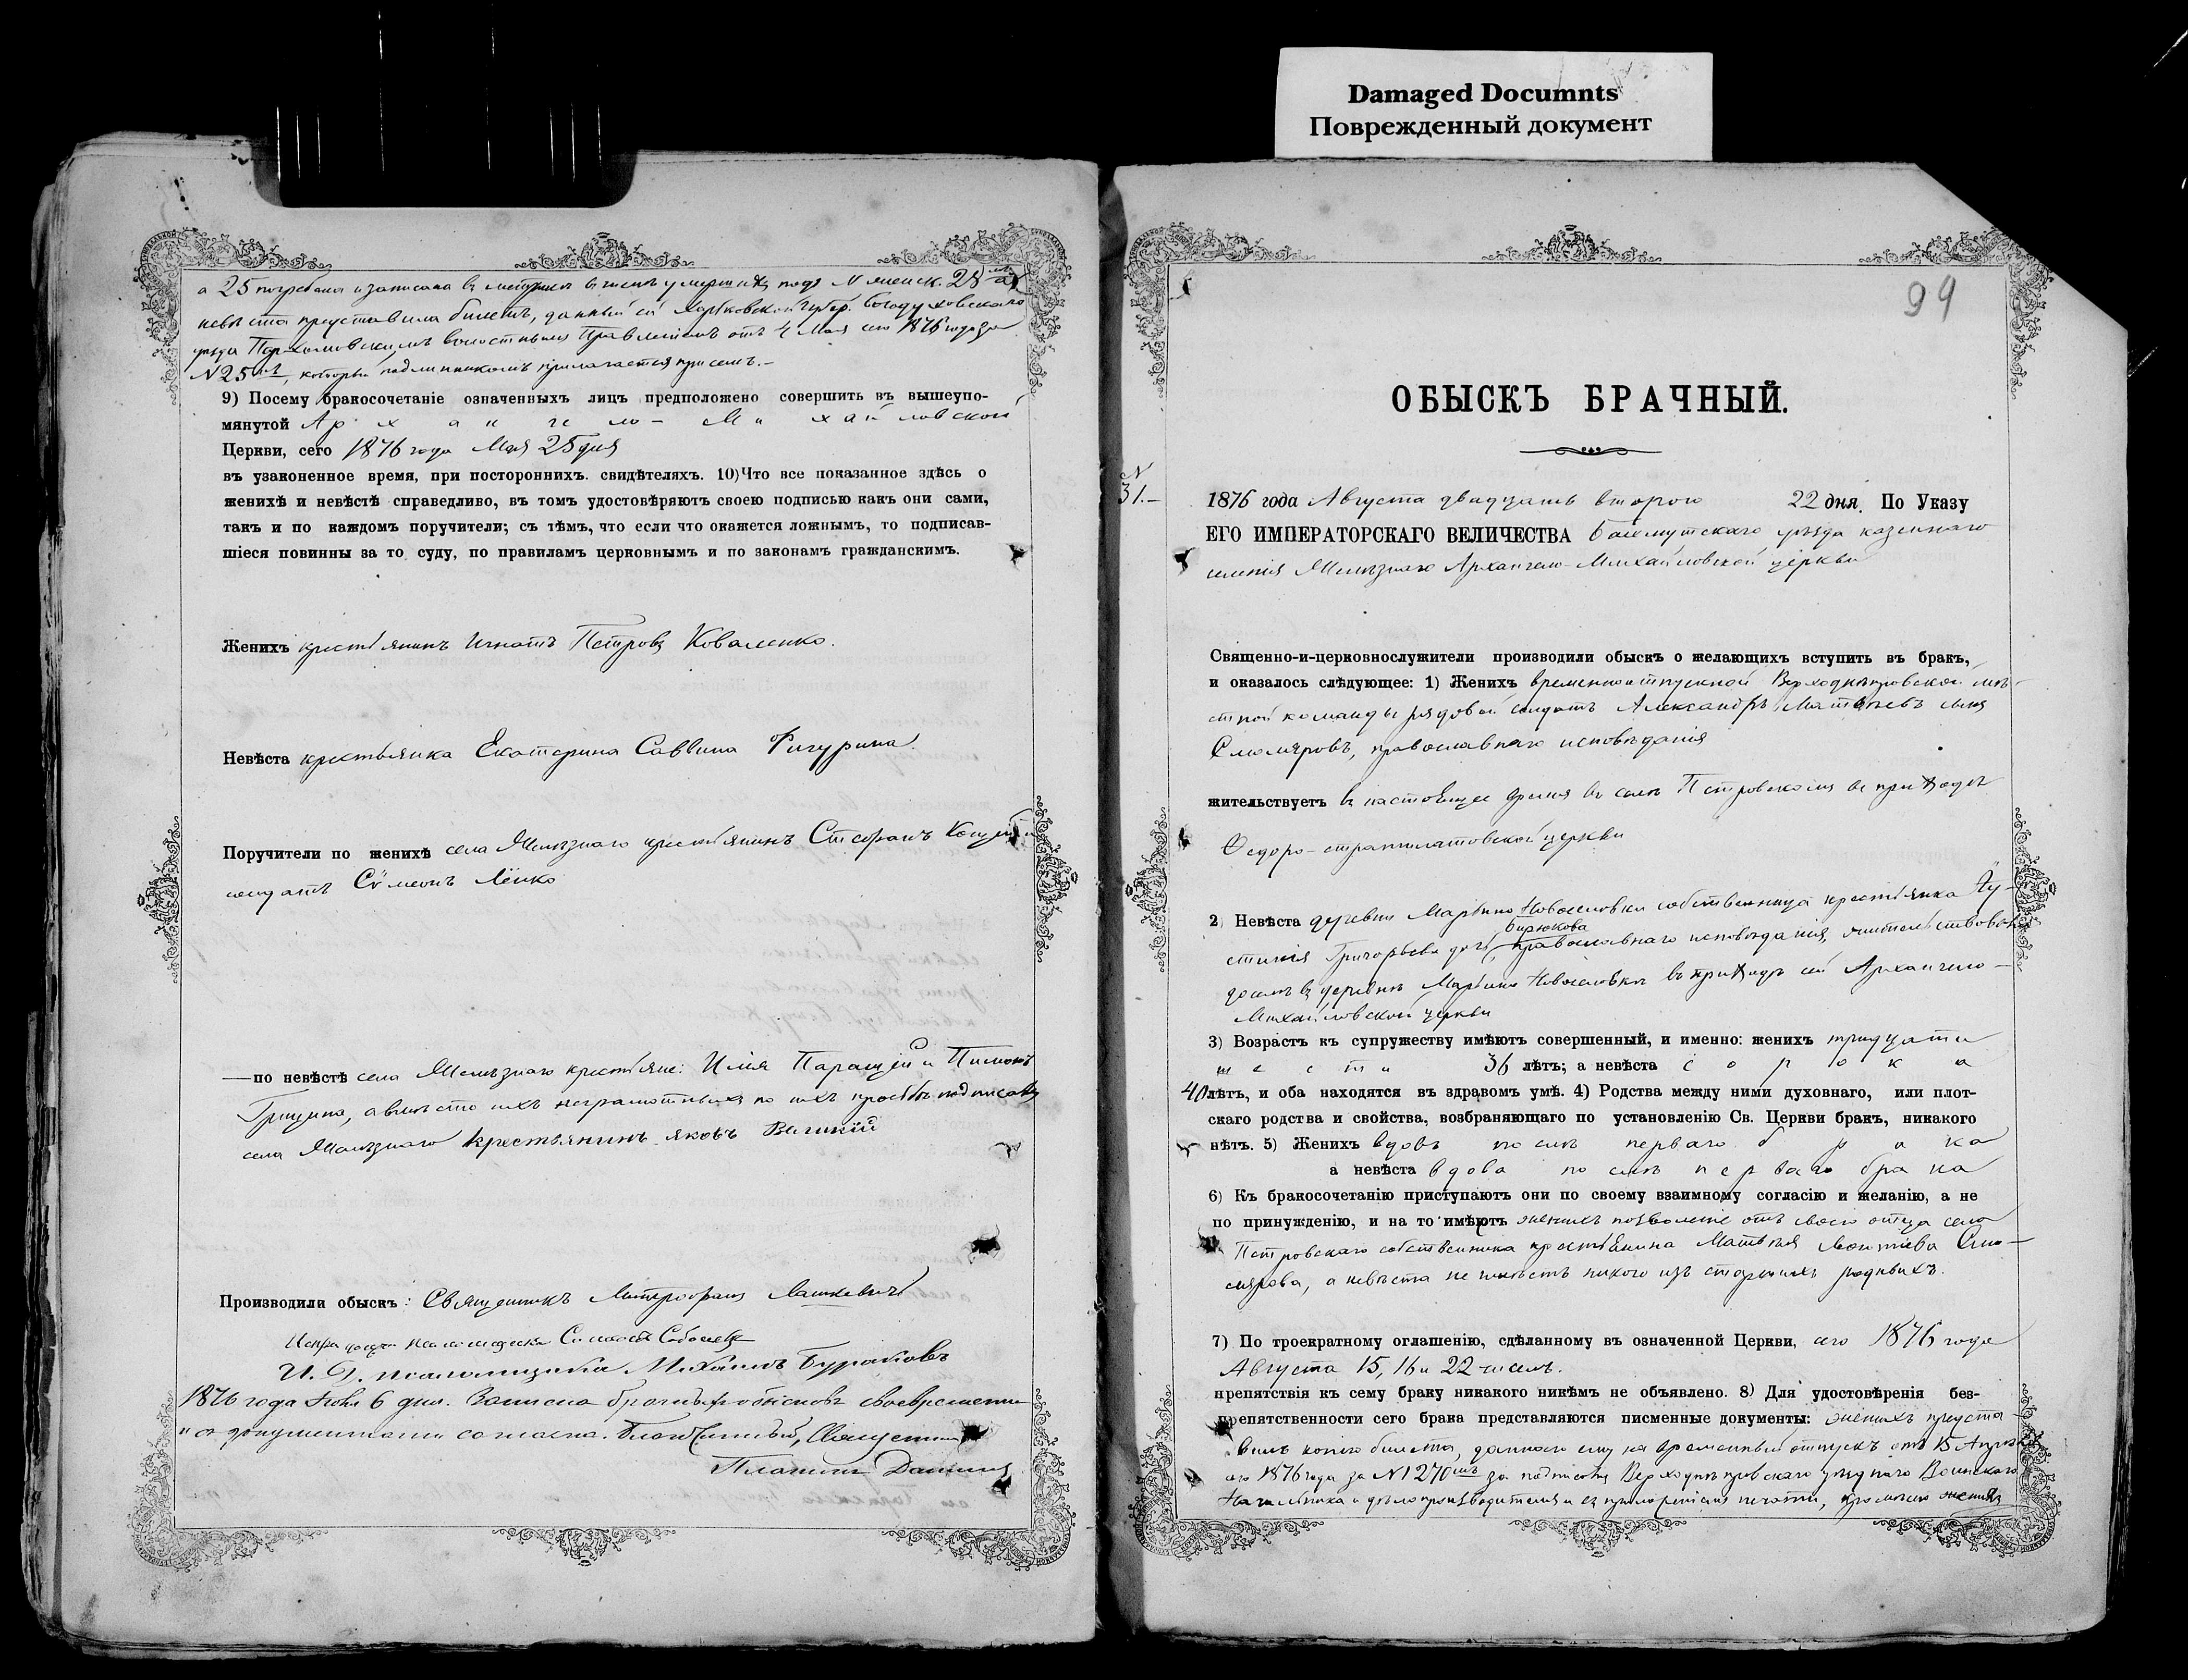 Damaged Documnts
Поврежденный документ
а 25 погребена и записана въ метрикѣ въ числѣ умершихъ подъ № женск. 28
невѣста представила билетъ, данный ей Харьковской губер. Богодуховскаго
уѣзда Пархомовскимъ волостнымъ Правленіемъ отъ 4 Мая сего 1876 года за
№ 25, который подлинникомъ прилагается при семъ.–
9) Посему бракосочетаніе означенныхъ лицъ предположено совершить въ вышеупо-
мянутой Архангело-Михайловской
Церкви, сего 1876 года Мая 25 дня
въ узаконенное время, при постороннихъ свидѣтеляхъ. 10) Что все показанное здѣсь о
женихѣ и невѣстѣ справедливо, въ томъ удостовѣряютъ своею подписью какъ они сами,
такъ и по каждомъ поручители; съ тѣмъ, что если что окажется ложнымъ, то подписав-
шіеся повинны за то суду, по правиламъ церковнымъ и по законамъ гражданскимъ.
Женихъ крестьянинъ Игнатъ Петровъ Коваленко.
Невѣста крестьянка Екатерина Саввина Фигурина.
Поручители по женихѣ села Желѣзнаго крестьянинъ Стефанъ
солдатъ Сѵмеонъ Лёнко
— по невѣстѣ села Желѣзнаго крестьяне: Илія Паращей и Пименъ
Грицина, а вмѣсто ихъ неграмотныхъ по ихъ просьбѣ подписался
села Желѣзнаго крестьянинъ Яковъ Великій
Производили обыскъ: Священникъ Митрофанъ Лашкевичъ
псаломщика Симеонъ
И. Д. псаломщика Михаилъ Бураковъ
1876 года Іюня 6 дня. Записка брачныхъ обысковъ своевременна
и съ документами согласна. Благочинный, Священникъ
Платонъ
99
ОБЫСКЪ БРАЧНЫЙ.
N
31.–
1876 года Августа двадцать втораго 22 дня. По Указу
ЕГО ИМПЕРАТОРСКАГО ВЕЛИЧЕСТВА Бахмутскаго уѣзда казеннаго
селенія Желѣзнаго Архангело-Михайловской церкви
Священно-и-церковнослужители производили обыскъ о желающихъ вступить въ бракъ,
и оказалось слѣдующее: 1) Женихъ временноотпускной Верходнѣпровской мѣ-
стной команды рядовой солдатъ Александръ Матѳеевъ сынъ
Смоляровъ, православнаго исповѣданія
жительствуетъ въ настоящее время въ селѣ Петровскомъ въ приходѣ
Ѳедоро-стратилатовской церкви
2) Невѣста деревни Марьино Новоселовки собственница крестьянка Іу-
Бирюкова
стинія Григорьева дочь, православнаго исповѣданія, жительствовала
досель въ деревнѣ Марьино Новоселовкѣ въ приходѣ сей Архангело-
Михайловской церкви
3) Возрастъ къ супружеству имѣютъ совершенный, и именно: женихъ тридцати
шести 36 лѣтъ; а невѣста сорока
40 лѣтъ, и оба находятся въ здравомъ умѣ. 4) Родства между ними духовнаго, или плот-
скаго родства и свойства, возбраняющаго по установленію Св. Церкви бракъ, никакого
нѣтъ. 5) Женихъ вдовъ послѣ перваго брака
а невѣста вдова послѣ перваго брака
6) Къ бракосочетанію приступаютъ они по своему взаимному согласію и желанію, а не
по принужденію, и на то имѣютъ женихъ позволеніе отъ своего отца села
Петровскаго собственника крестьянина Матвѣя Леонтіева Смо-
лярова, а невѣста не имѣетъ никого изъ старшихъ родныхъ.
7) По троекратному оглашенію, сдѣланному въ означенной Церкви, сего 1876 года
Августа 15, 16 и 22 числъ.
препятствія къ сему браку никакого никѣмъ не объявлено. 8) Для удостовѣренія без-
препятственности сего брака представляются писменные документы: женихъ предста-
вилъ копію билета, даннаго ему на временный отпускъ отъ 15 Апрѣля
сего 1876 года за № 1270 за подписомъ Верходнѣпровскаго уѣзднаго Воинскаго
Начальника и дѣлопроизводителя и съ приложеніемъ печати, женихъ